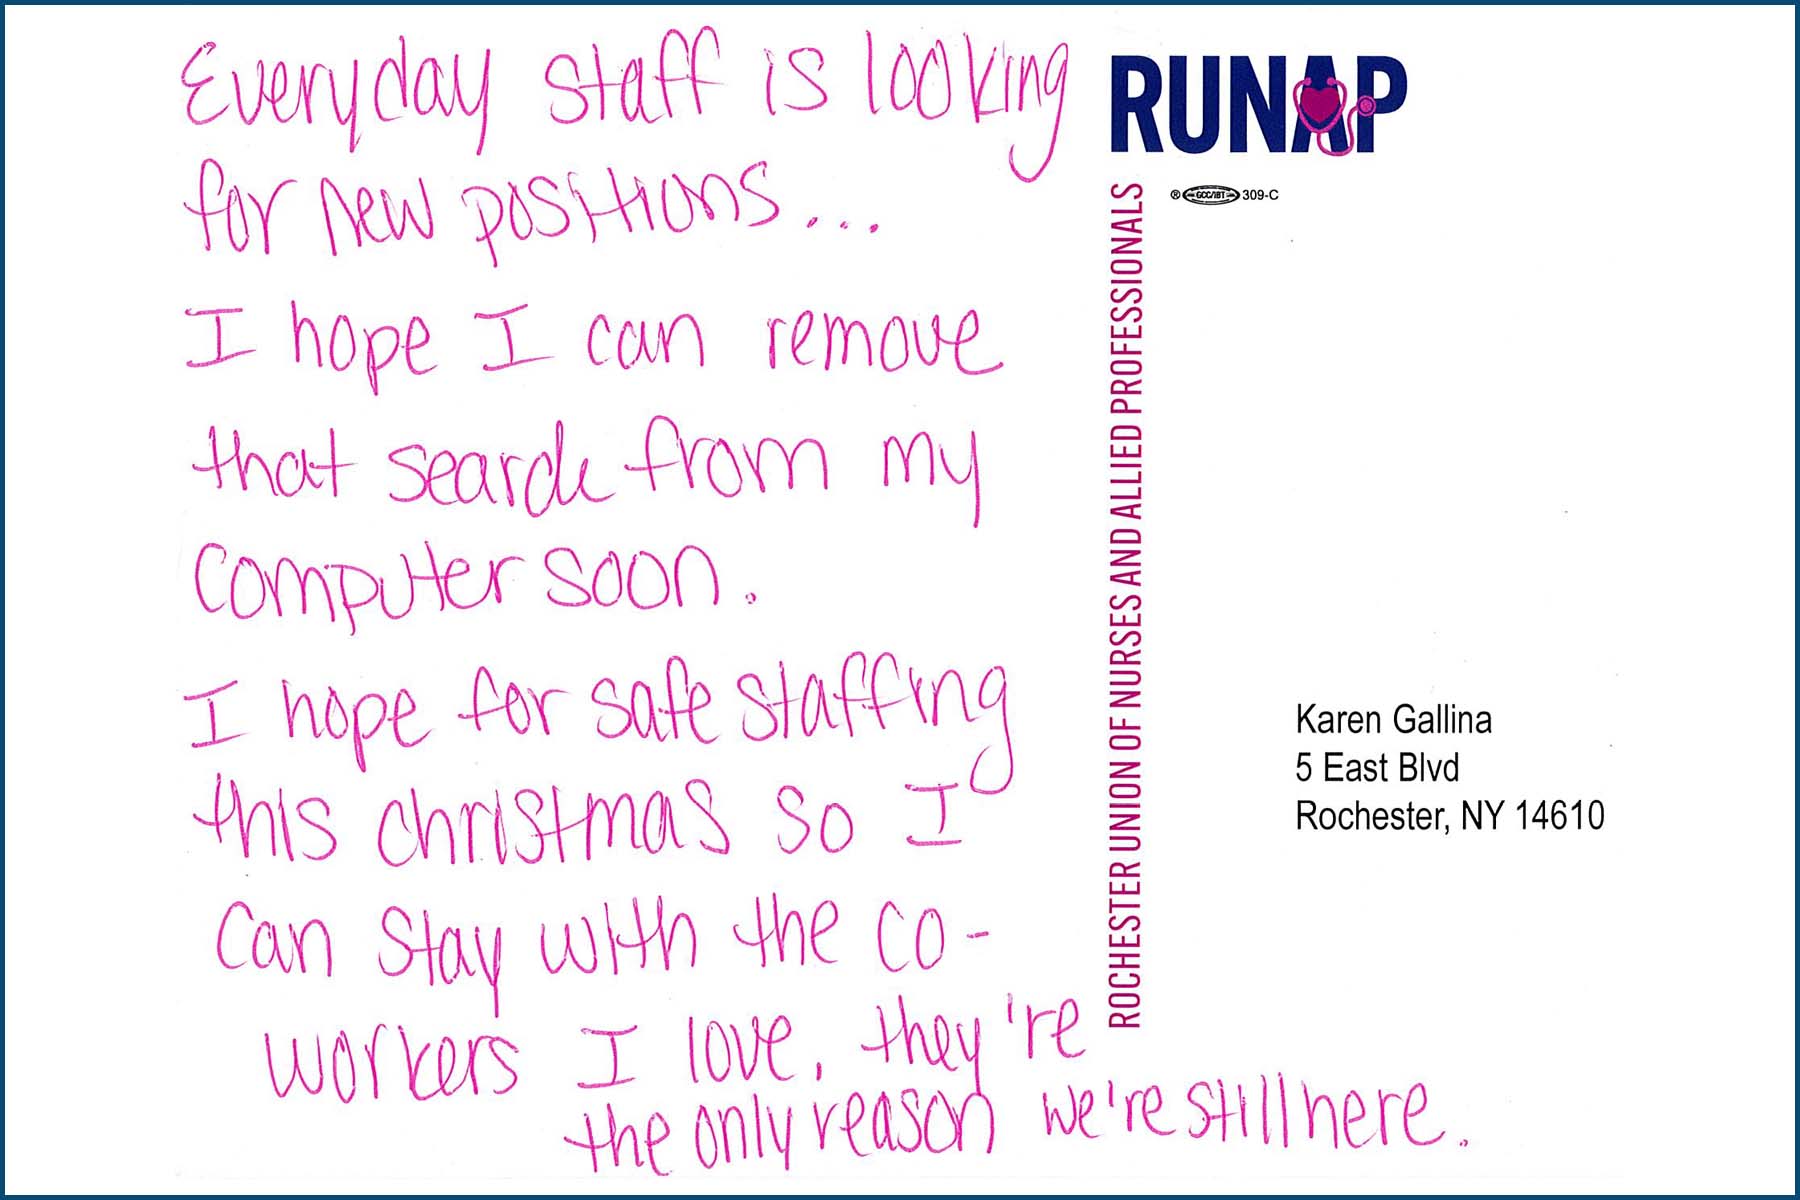 Everyday staff is looking
for new positions...
I hope I can remove
that search from my
computer soon.
I hope for safe staffing
this christmas so I
can stay with the co-
workers I love, they're
the only reason we're still here.
RUNAP
® GCC/IBT 309-C
ROCHESTER UNION OF NURSES AND ALLIED PROFESSIONALS
Karen Gallina
5 East Blvd
Rochester, NY 14610